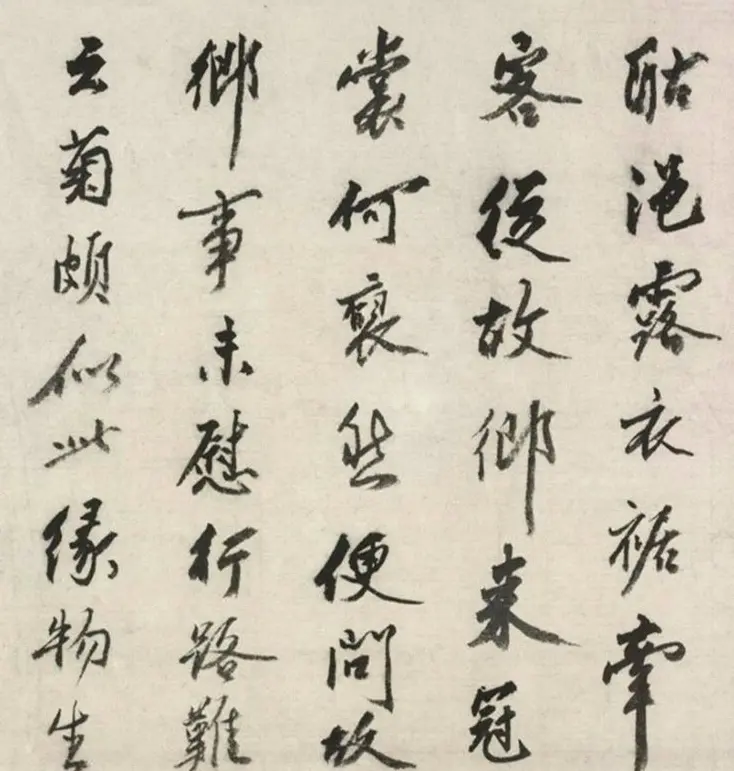 酤浥露衣裾牽
客從故鄉來冠
裳何然便問故
鄉事未慰行路難
云菊頗似此緣物生